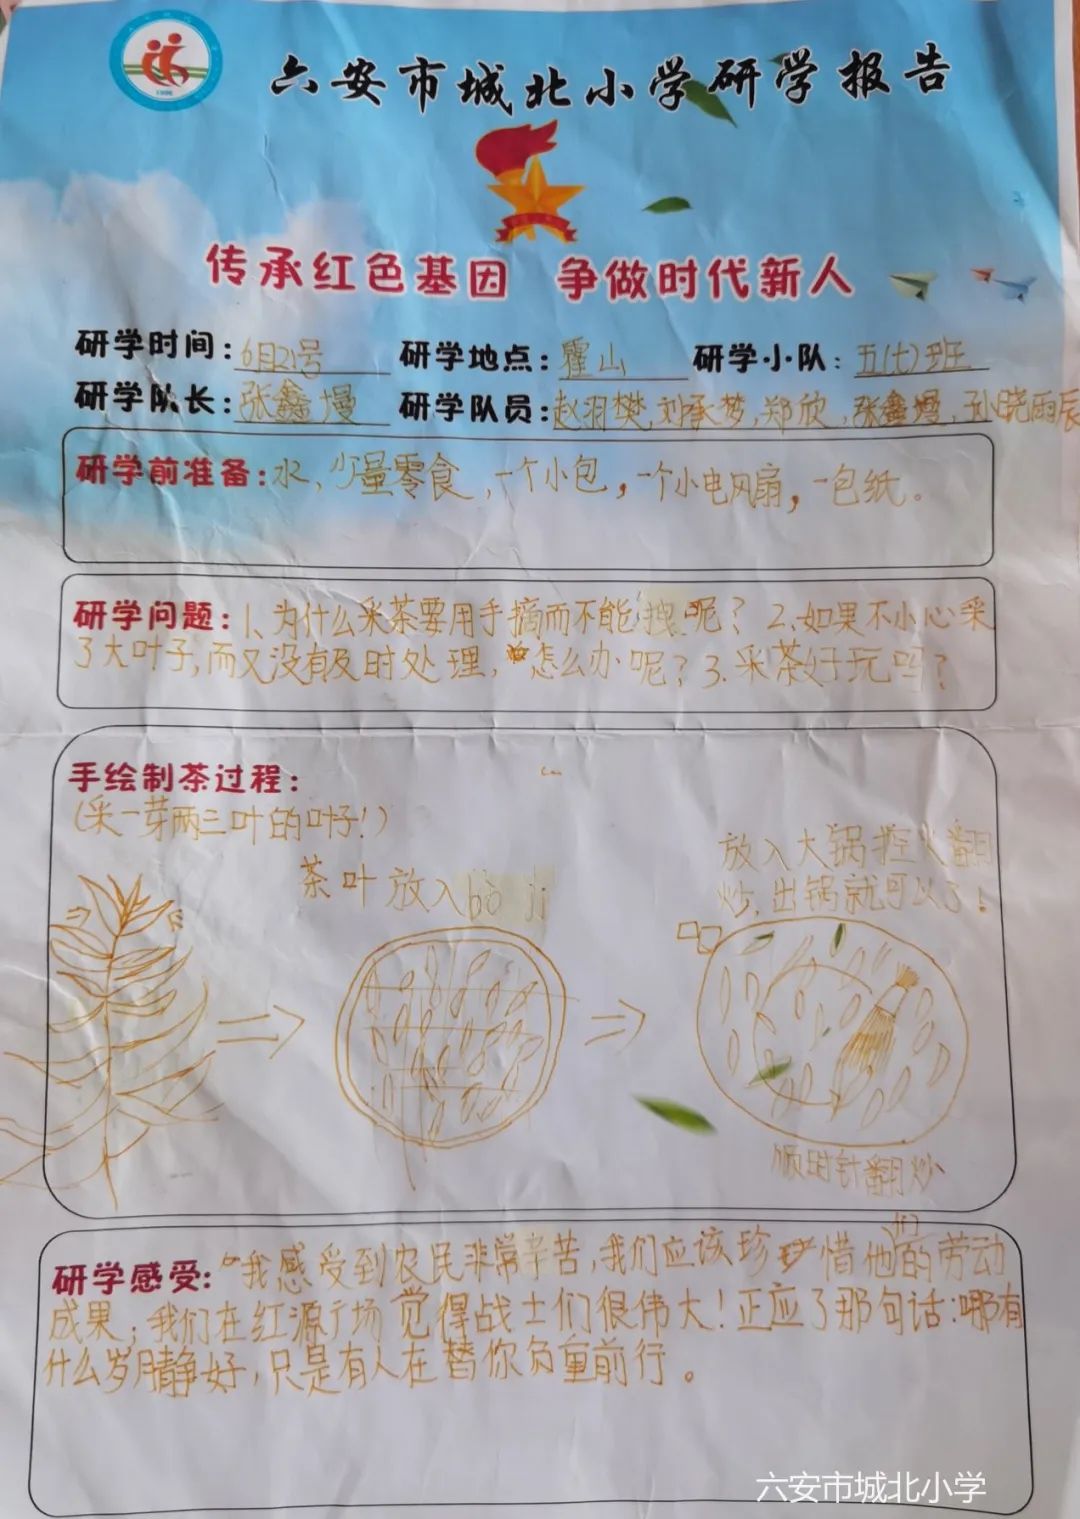 六安市城北小学研学报告
传承红色基因 争做时代新人
研学时间:6月21号 研学地点:霍山 研学小队:五(七)班
研学队长:张鑫墁 研学队员:赵羽樊,刘承梦,郑欣,张鑫墁,孙晓雨辰
研学前准备:水,少量零食,一个小包,一个小电风扇,一包纸。
研学问题:1、为什么采茶要用手摘而不能拽呢?2、如果不小心采
了大叶子,而又没有及时处理,怎么办呢?3.采茶好玩吗?
手绘制茶过程:
(采一芽两三叶的叶子!)
茶叶放入bò ji
放入大锅控火翻
炒,出锅就可以了!
顺时针翻炒
研学感受:“我感受到农民非常辛苦,我们应该珍惜他们的劳动
成果;我们在红源广场觉得战士们很伟大!正应了那句话:哪有
什么岁月静好,只是有人在替你负重前行。
六安市城北小学